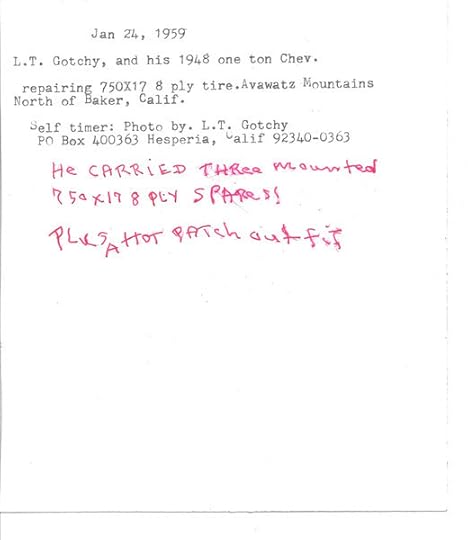 Jan 24, 1959
L.T. Gotchy, and his 1948 one ton Chev.
repairing 750X17 8 ply tire.Avawatz Mountains
North of Baker, Calif.
Self timer: Photo by. L.T. Gotchy
PO Box 400363 Hesperia, Calif 92340-0363
He CARRiED THRee mounted
750x17 8 PLY SPARes!
PLUS A HOT PATCh outfit